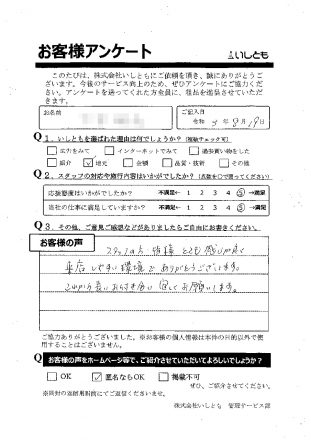 お客様アンケート いしとも
このたびは、株式会社いしともにご依頼を頂き、誠にありがとうござ
います。今後のサービス向上のため、ぜひアンケートにご協力くださ
い。アンケートを送ってくれた方全員に、粗品を進呈させていただ
きます。
お名前 ご記入日
令和 5年 8月 19日
Q1.いしともを選ばれた理由は何でしょうか?(複数チェック可)
広告をみて インターネットでみて 過去買い物をした
紹介 ✓ 地元 金額 品質・技術 その他
Q2.スタッフの対応や施行内容はいかがでしたか?(点数を○で囲ってください)
応接態度はいかがでしたか? 不満足← 1 2 3 4 ⑤ →満足
当社の仕事に満足していますか? 不満足← 1 2 3 4 ⑤ →満足
Q3.その他、ご意見ご感想などがありましたらご自由にお書きください。
お客様の声
スタッフの方 皆様 とても 感じが良く
来店 しやすい環境で ありがとうございます。
お付き合い 宜しくお願いします。
ご協力ありがとうございました。※お客様の個人情報は本件の目的以外で使
用することはございません。
Q お客様の声をホームページ等で、ご紹介させていただいてよろしいでしょうか?
OK ✓ 匿名ならOK 掲載不可
ぜひ、ご紹介させてください。
※同封の返信用封筒にてご返信くださいませ。
株式会社いしとも 管理サービス部